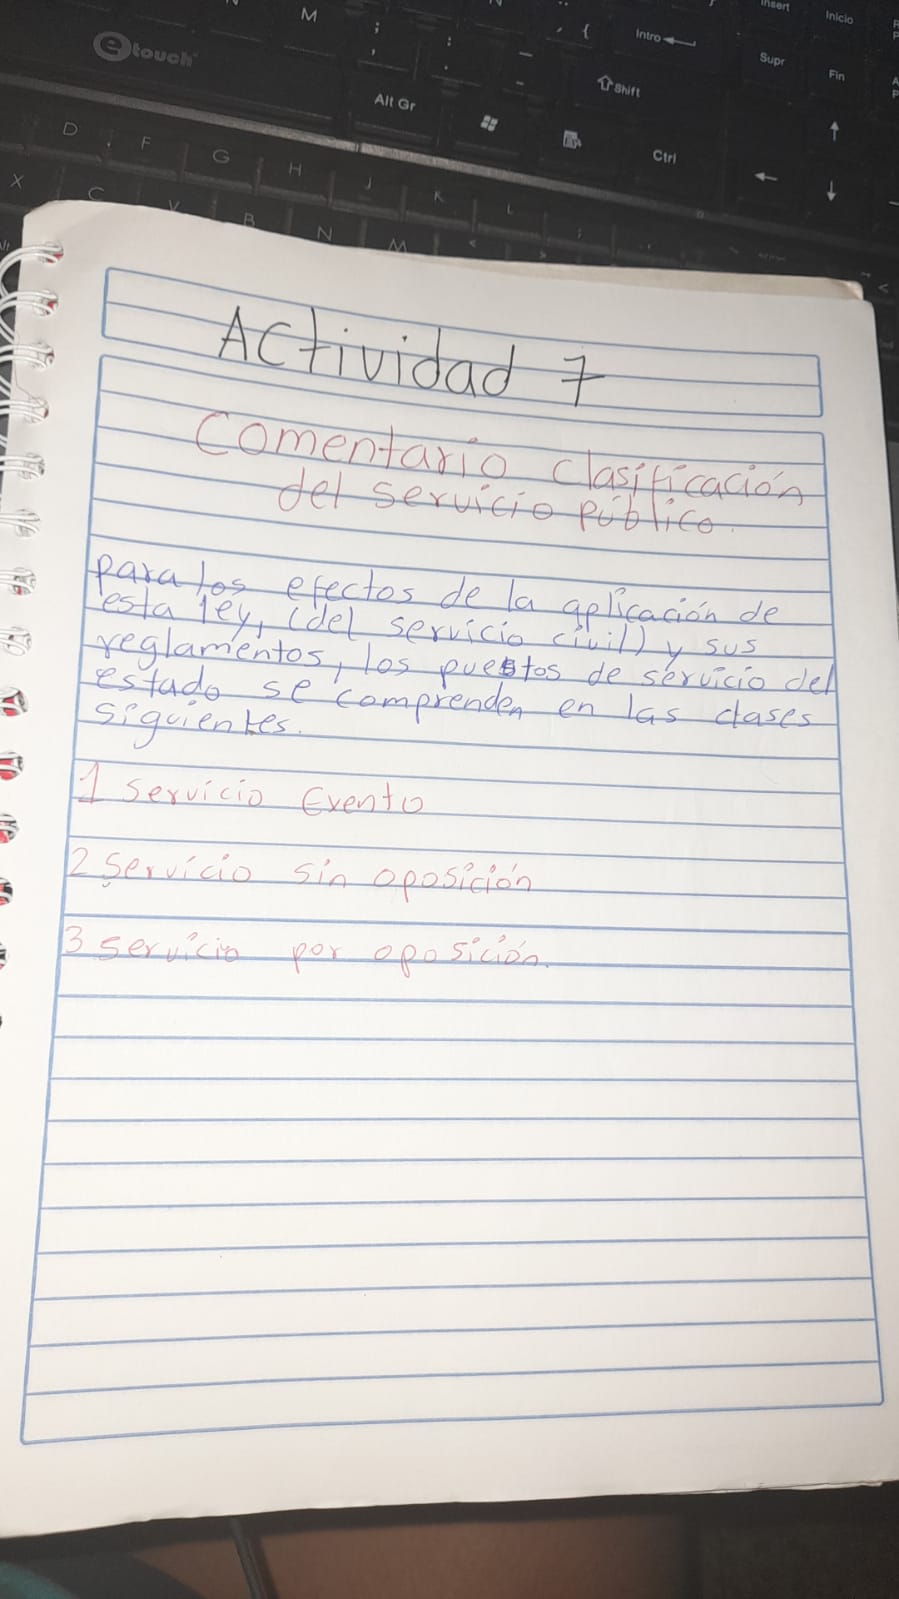 M
Insert
Inicio
etouch
Intro
Supr
Fin
Shift
Alt Gr
Ctrl
D F G H J K L
X C V B N M
Actividad 7
Comentario clasificación
del servicio público.
para los efectos de la aplicación de
esta ley, (del servicio civil) y sus
reglamentos, los puestos de servicio del
estado se comprenden en las clases
siguientes.
1 Servicio Exento
2 Servicio sin oposición
3 servicio por oposición.